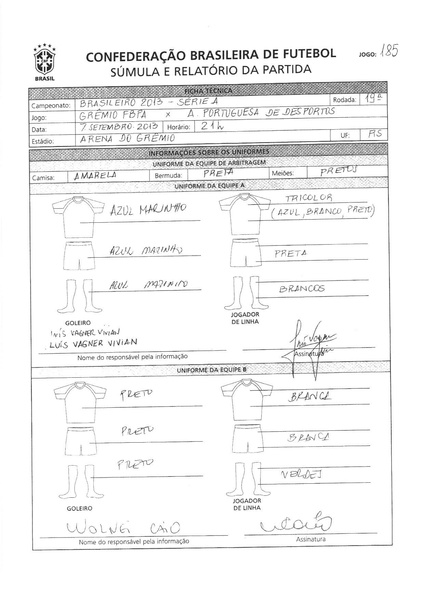 BRASIL
CONFEDERAÇÃO BRASILEIRA DE FUTEBOL
SÚMULA E RELATÓRIO DA PARTIDA
JOGO: 185
FICHA TÉCNICA
Campeonato: BRASILEIRO 2013 - SÉRIE A Rodada: 19ª
Jogo: GRÊMIO FBPA X A. PORTUGUESA DE DESPORTOS
Data: 7 SETEMBRO 2013 Horário: 21h
Estádio: ARENA DO GRÊMIO UF: RS
INFORMAÇÕES SOBRE OS UNIFORMES
UNIFORME DA EQUIPE DE ARBITRAGEM
Camisa: AMARELA Bermuda: PRETA Meiões: PRETOS
UNIFORME DA EQUIPE A
AZUL MARINHO TRICOLOR
(AZUL, BRANCO, PRETO)
AZUL MARINHO PRETA
AZUL MARINHO BRANCOS
GOLEIRO JOGADOR
DE LINHA
LUÍS VAGNER VIVIAN
LUÍS VAGNER VIVIAN
Nome do responsável pela informação Assinatura
UNIFORME DA EQUIPE B
PRETO BRANCA
PRETO BRANCA
PRETO VERDES
GOLEIRO JOGADOR
DE LINHA
WOLNEI CAIO
Nome do responsável pela informação Assinatura